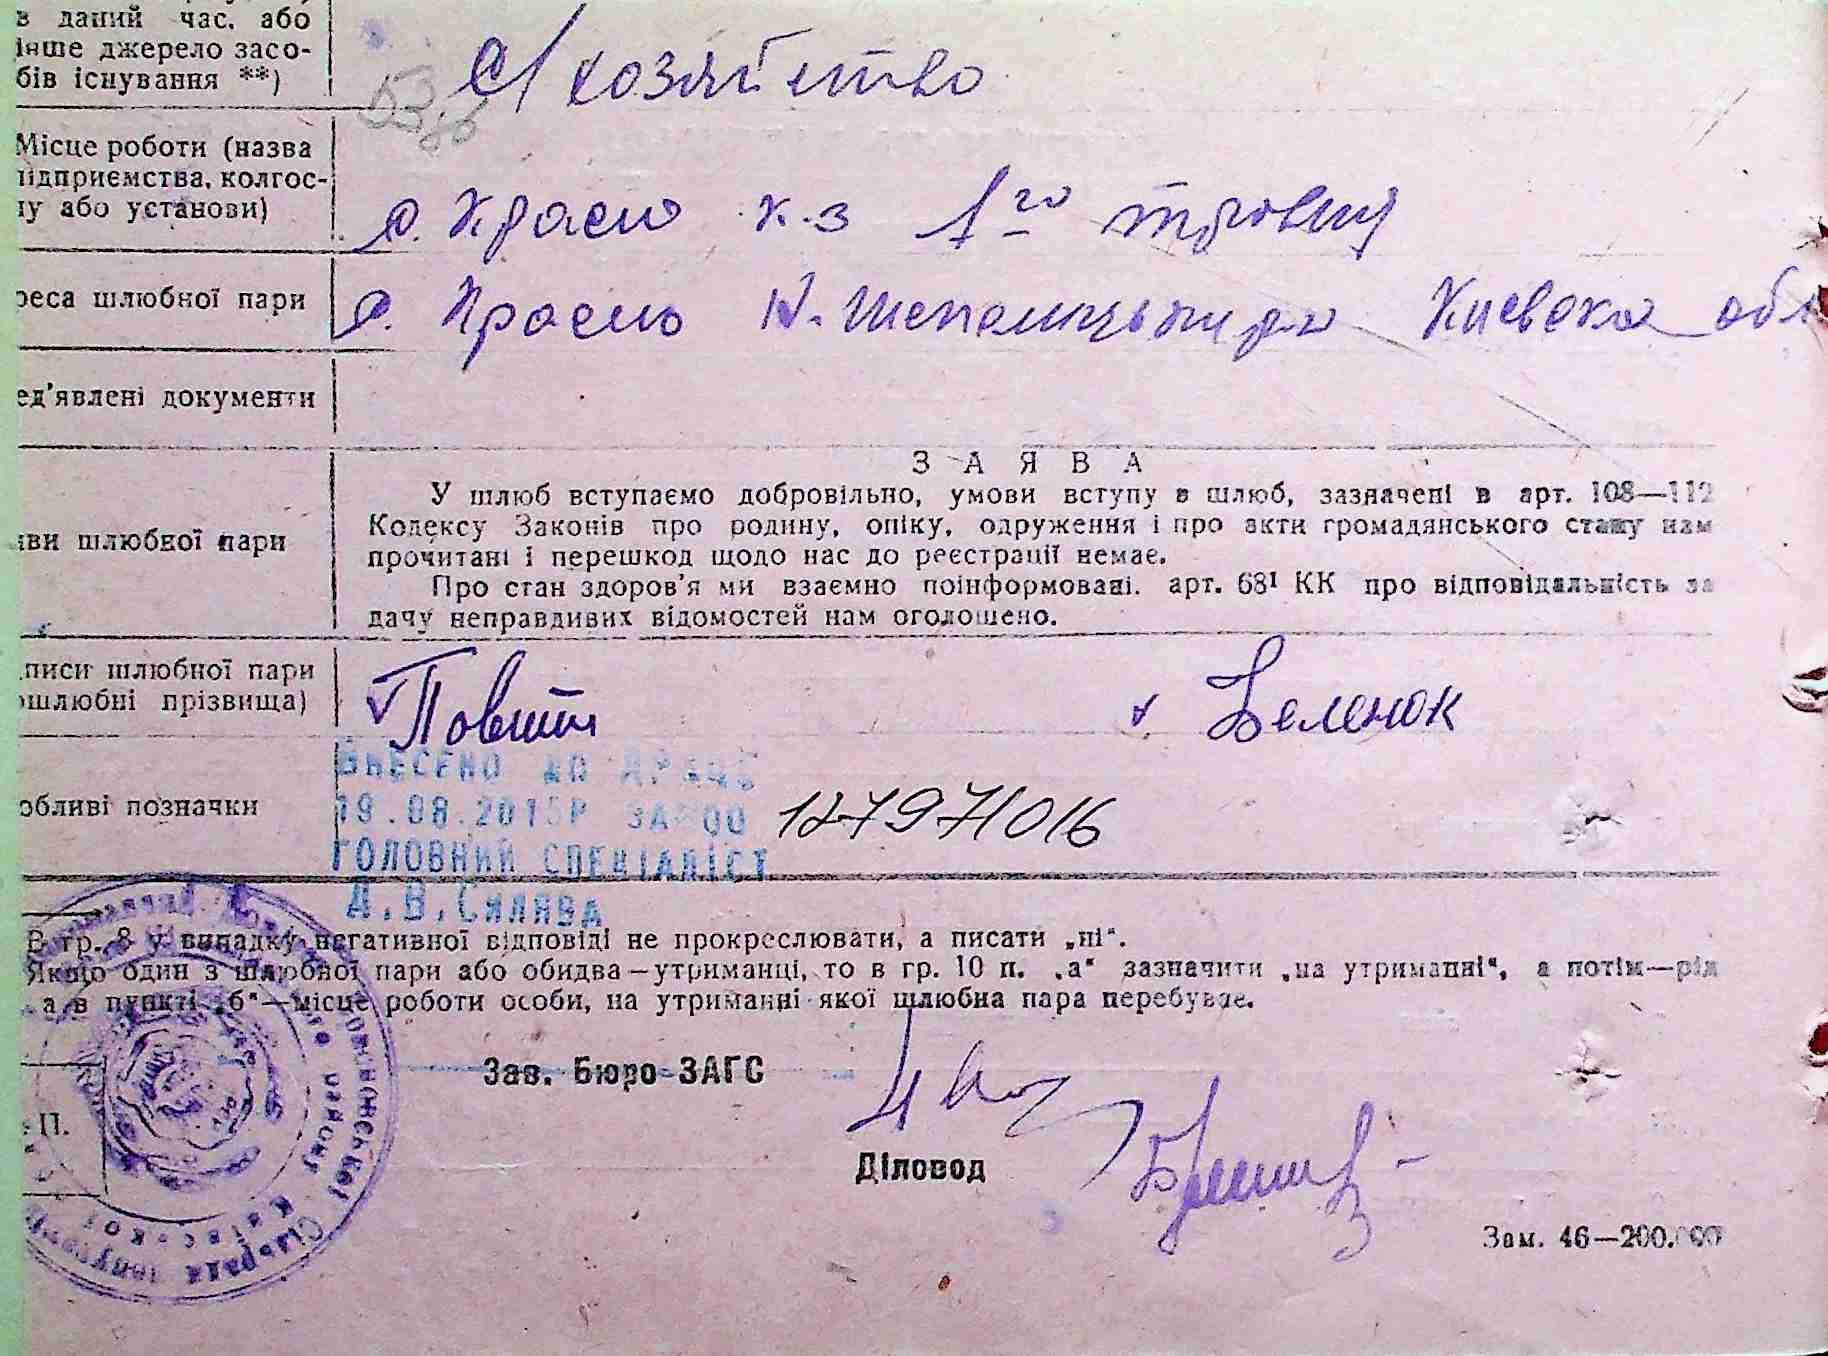 в даний час, або
інше джерело засо-
бів існування **)
с/хозяйство
53
Місце роботи (назва
підприємства, колгос-
пу або установи)
с. Красно к-з 1го травня
реса шлюбної пари
с. Красно Н. Шепелицьки р-н Киевска обл
ед'явлені документи
ЗАЯВА
У шлюб вступаємо добровільно, умови вступу в шлюб, зазначені в арт. 108—112
Кодексу Законів про родину, опіку, одруження і про акти громадянського стану нам
прочитані і перешкод щодо нас до реєстрації немає.
яви шлюбної пари
Про стан здоров'я ми взаємно поінформовані. арт. 68¹ КК про відповідальність за
дачу неправдивих відомостей нам оголошено.
писи шлюбної пари
ошлюбні прізвища)
Повит Беленок
ВНЕСЕНО ДО ДРАЦС
обливі позначки
19.08.2015Р ЗА №00 127971016
ГОЛОВНИЙ СПЕЦІАЛІСТ
А.В.Силява
В гр. 8 у випадку негативної відповіді не прокреслювати, а писати „ні“.
Якщо один з шлюбної пари або обидва—утриманці, то в гр. 10 п. „а“ зазначити „на утриманні“, а потім—рід
а в пункті „б“—місце роботи особи, на утриманні якої шлюбна пара перебуває.
Зав. Бюро ЗАГС
П.
Діловод
Зам. 46—200.000